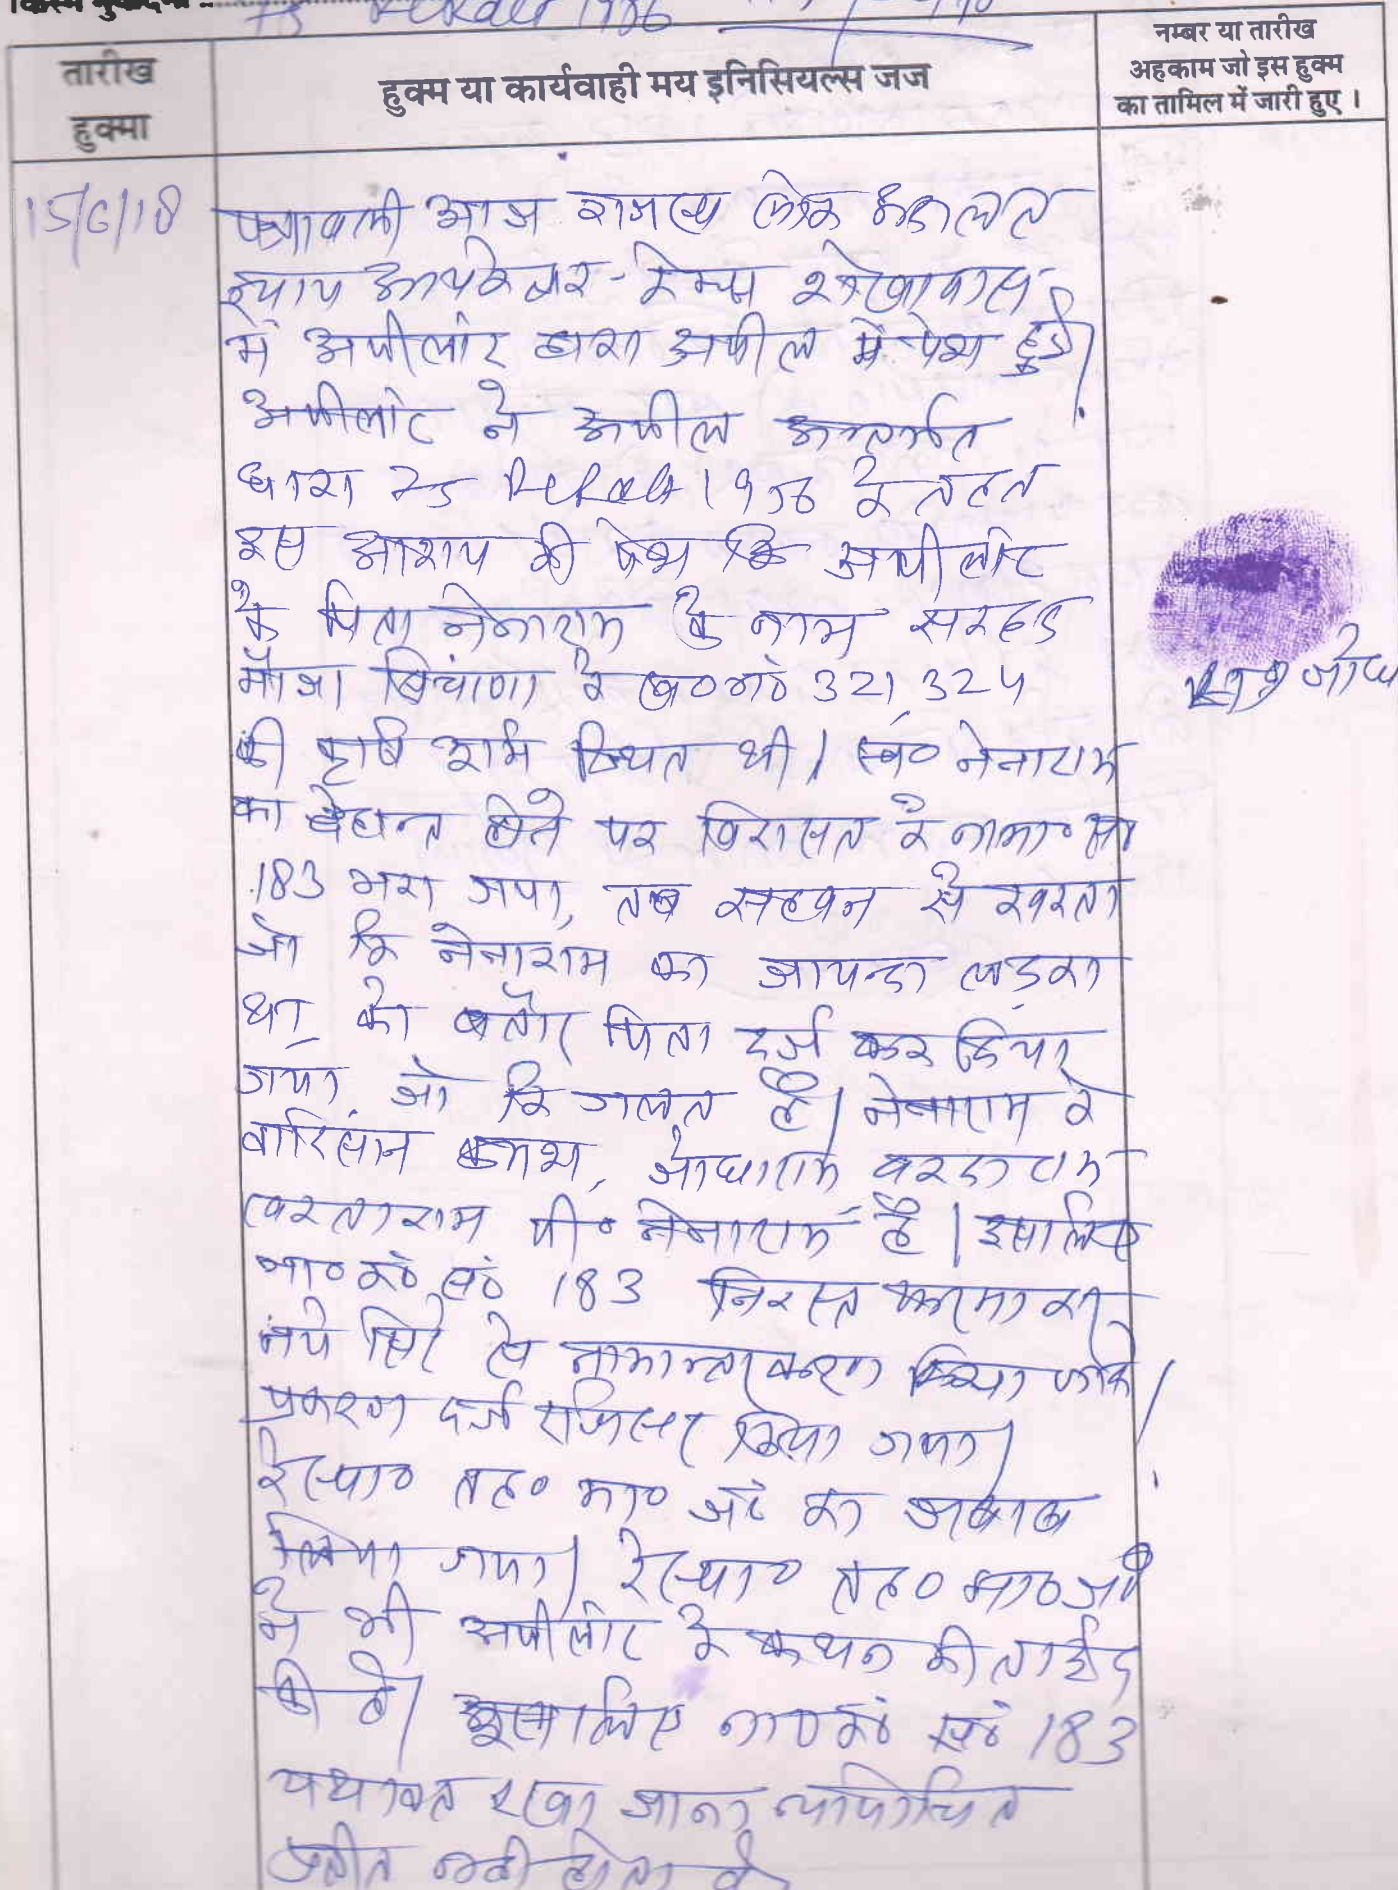 किस्म मुकदमा :-
75 1956
तारीख
हुक्मा
हुक्म या कार्यवाही मय इनिसियल्स जज
नम्बर या तारीख
अहकाम जो इस हुक्म
का तामिल में जारी हुए ।
15/6/18
पत्रावली आज राजस्व लोक अदालत
न्याय आपके द्वार - केम्प
में अपीलांट द्वारा अपील में पेश हुई।
अपीलांट ने अपील अन्तर्गत
धारा 75 1956 के तहत
इस आशय की पेश कि अपीलांट
के पिता नेनाराम के नाम सरहद
मौजा के ख०नं० 321, 324
की कृषि भूमि स्थित थी। स्व० नेनाराम
का देहान्त होने पर विरासत के सं०
183 भरा गया, तब सहवन से
जो कि नेनाराम का जायन्दा लड़का
था, को बतौर पिता दर्ज कर दिया
गया, जो कि गलत है। नेनाराम के
वारिसान क्रमश, जोधाराम वरदाराम
पी० नेनाराम है। इसलिए
ना० क० सं० 183 निरस्त फरमाकर
नये सिरे से नामान्तरकरण किया जावे।
प्रकरण दर्ज रजिस्टर किया गया।
रेस्पा० तह० मा० जं० का जवाब
लिया गया। रेस्पा० तह० मा० जं०
ने भी अपीलांट के कथन की ताईद
की है। इसलिए ना० क० सं० 183
यथावत रखा जाना न्यायोचित
प्रतीत नही होता है